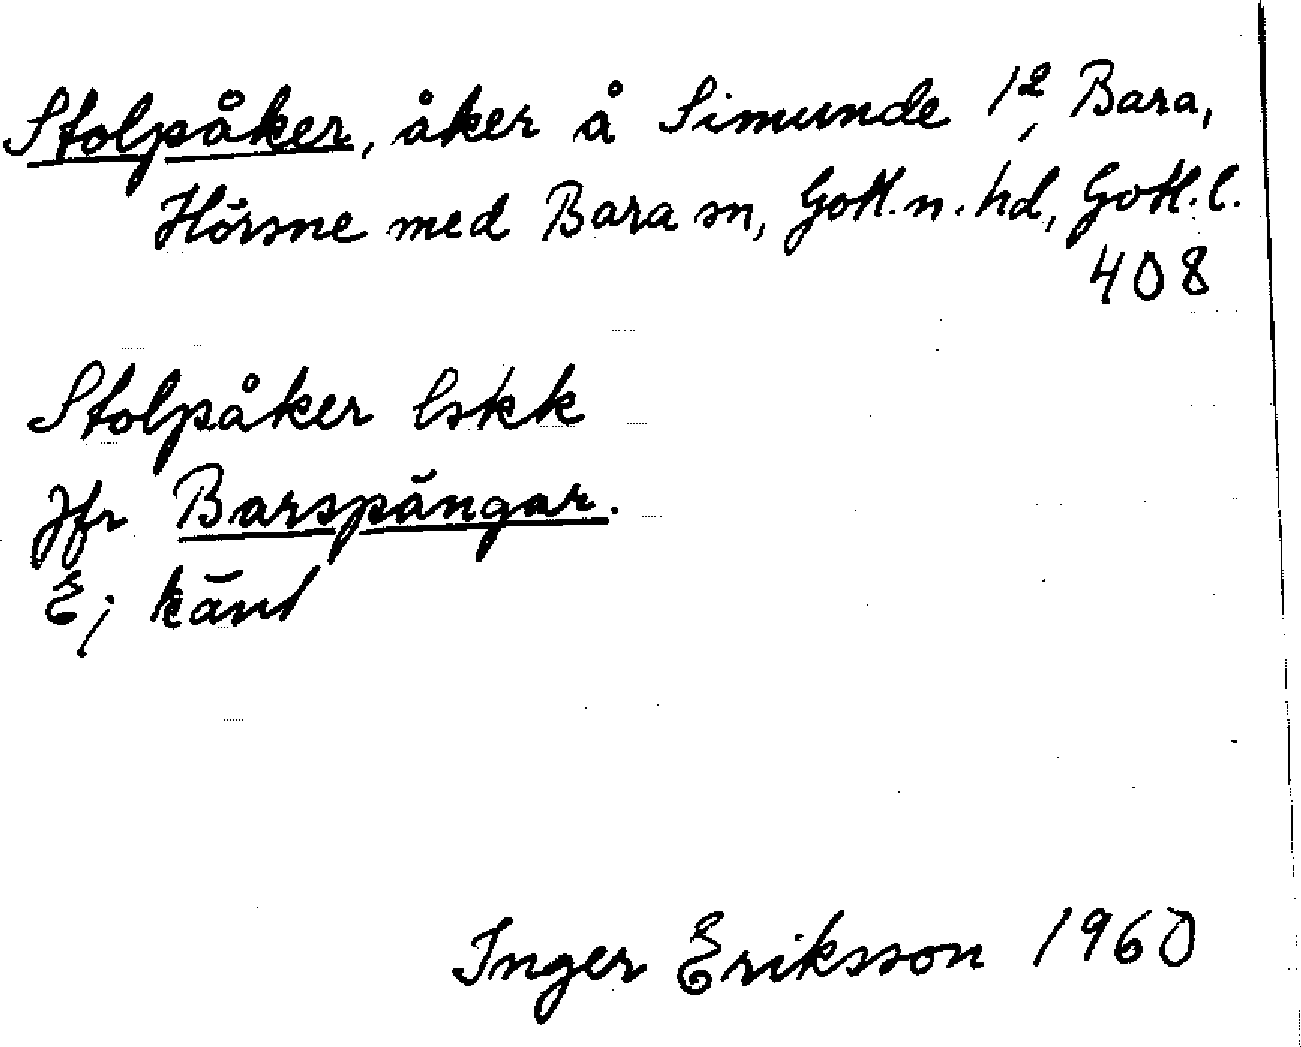 Stolpåker, åker å Simunde 1², Bara,
Hörsne med Bara sn, Gotl. n. hd, Gotl. l.
408
Stolpåker lskk
Jfr Barspängar.
Ej känt
Inger Eriksson 1960